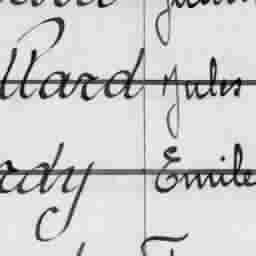 llard Jules
rdy Emile